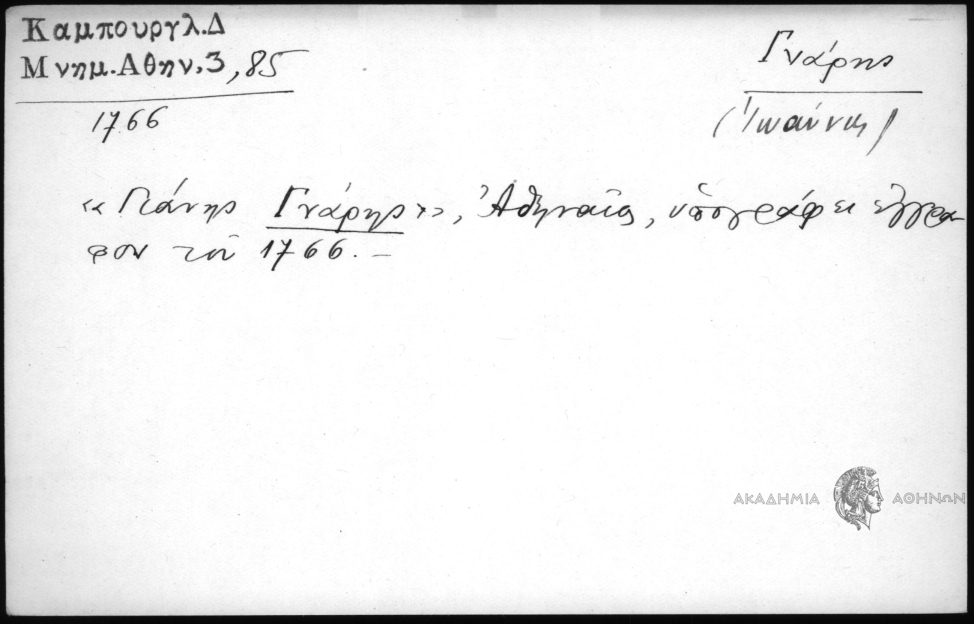 Καμπουργλ.Δ
Μνημ.Αθην.3,85
1766
Γνάρης
(Ἰωάννης)
«Γιάνης Γνάρης», Ἀθηναῖος, ὑπογράφει ἔγγρα-
φον τοῦ 1766.–
ΑΚΑΔΗΜΙΑ ΑΘΗΝΩΝ